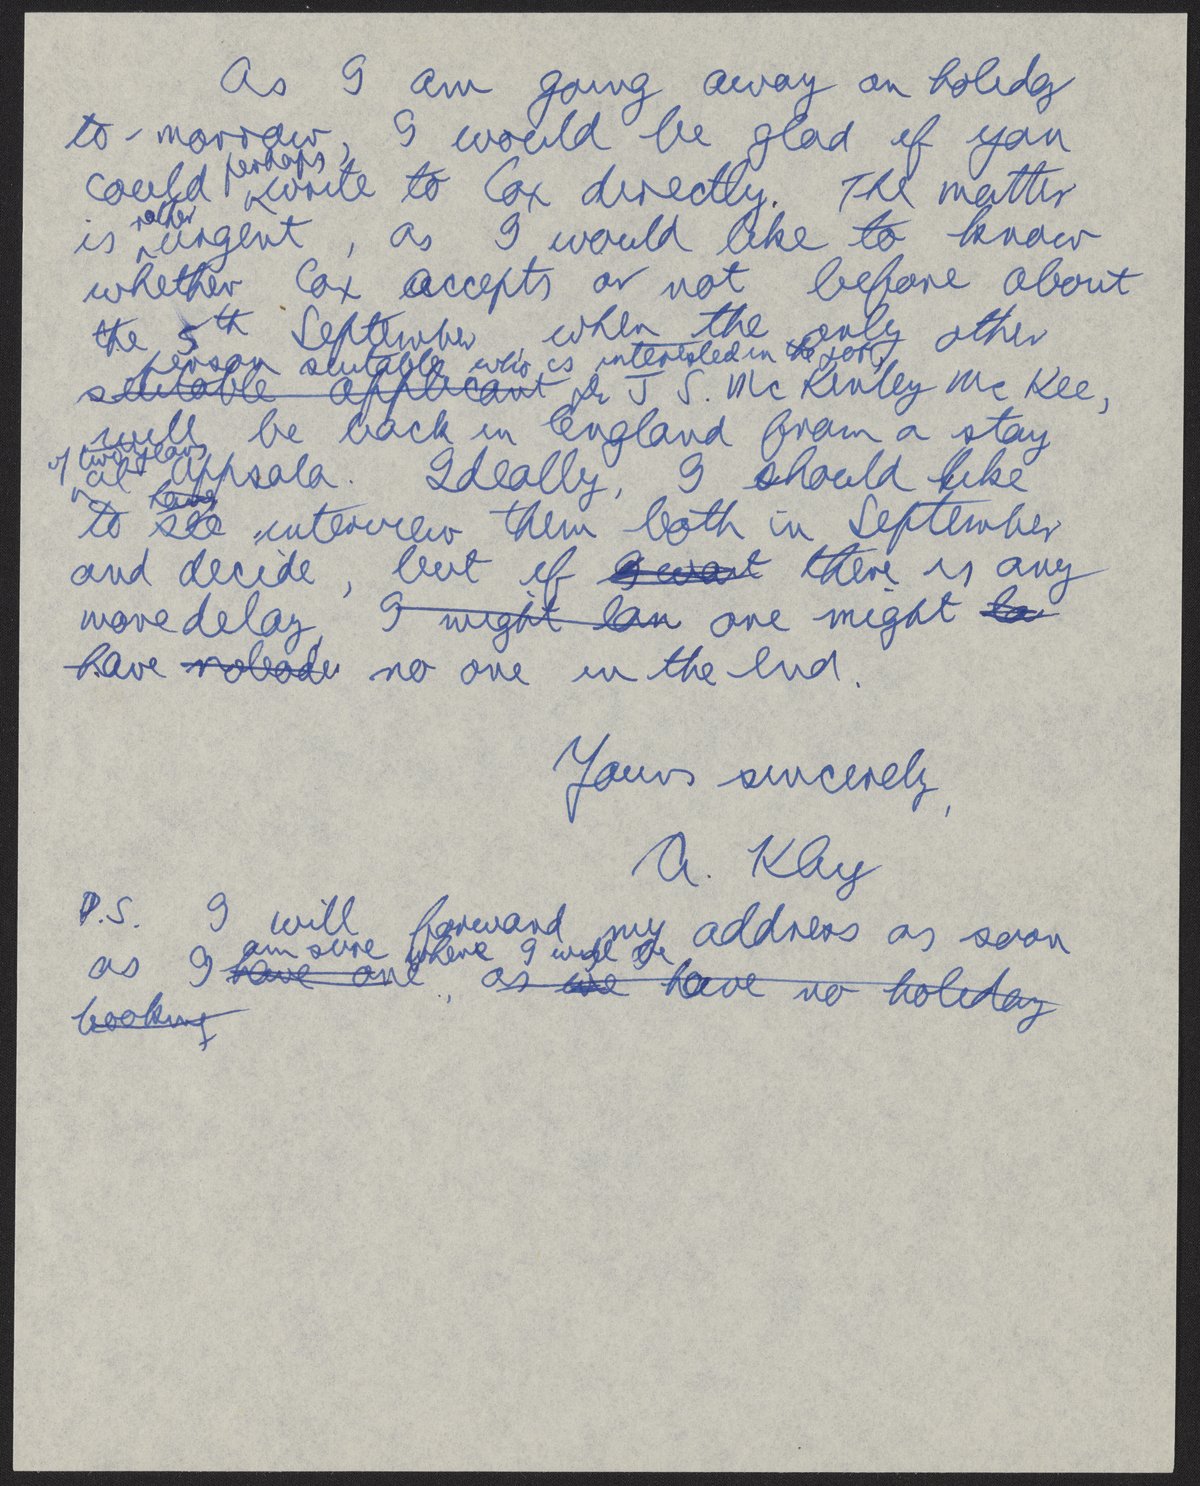 As I am going away on holiday
to-morrow, I would be glad if you
could perhaps write to Cox directly. The matter
is rather urgent, as I would like to know
whether Cox accepts or not before about
the 5th September, when the only other
person suitable who is interested in the job,
suitable applicant Dr J S. McKinley McKee,
will be back in England from a stay
of two years
at Uppsala. Ideally, I should like
have
to see interview them both in September
and decide, but if I want there is any
more delay, I might lan one might lo
have nobody no one in the end.
Yours sincerely,
A. Kay
P.S. I will forward my address as soon
am sure where I will be
as I have one, as we have no holiday
booking